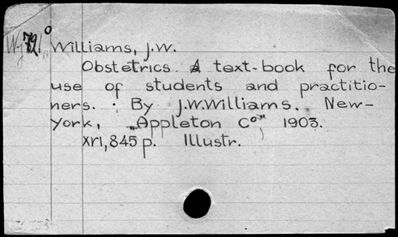 Williams, J.W.
Obstetrics. A text-book for the
use of students and practitio-
ners. · By J.W.Williams. New-
York, „Appleton C°" 1903.
XVI,845 p. Illustr.